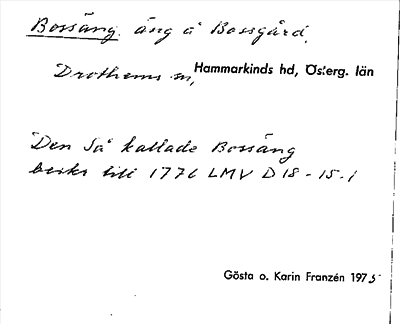 Bossäng. äng å Bossgård.
Drothems sn, Hammarkinds hd, Österg. län
Den så kallade Bossäng
beskr till 1776 LMV D 18 - 15.1
Gösta o. Karin Franzén 1975